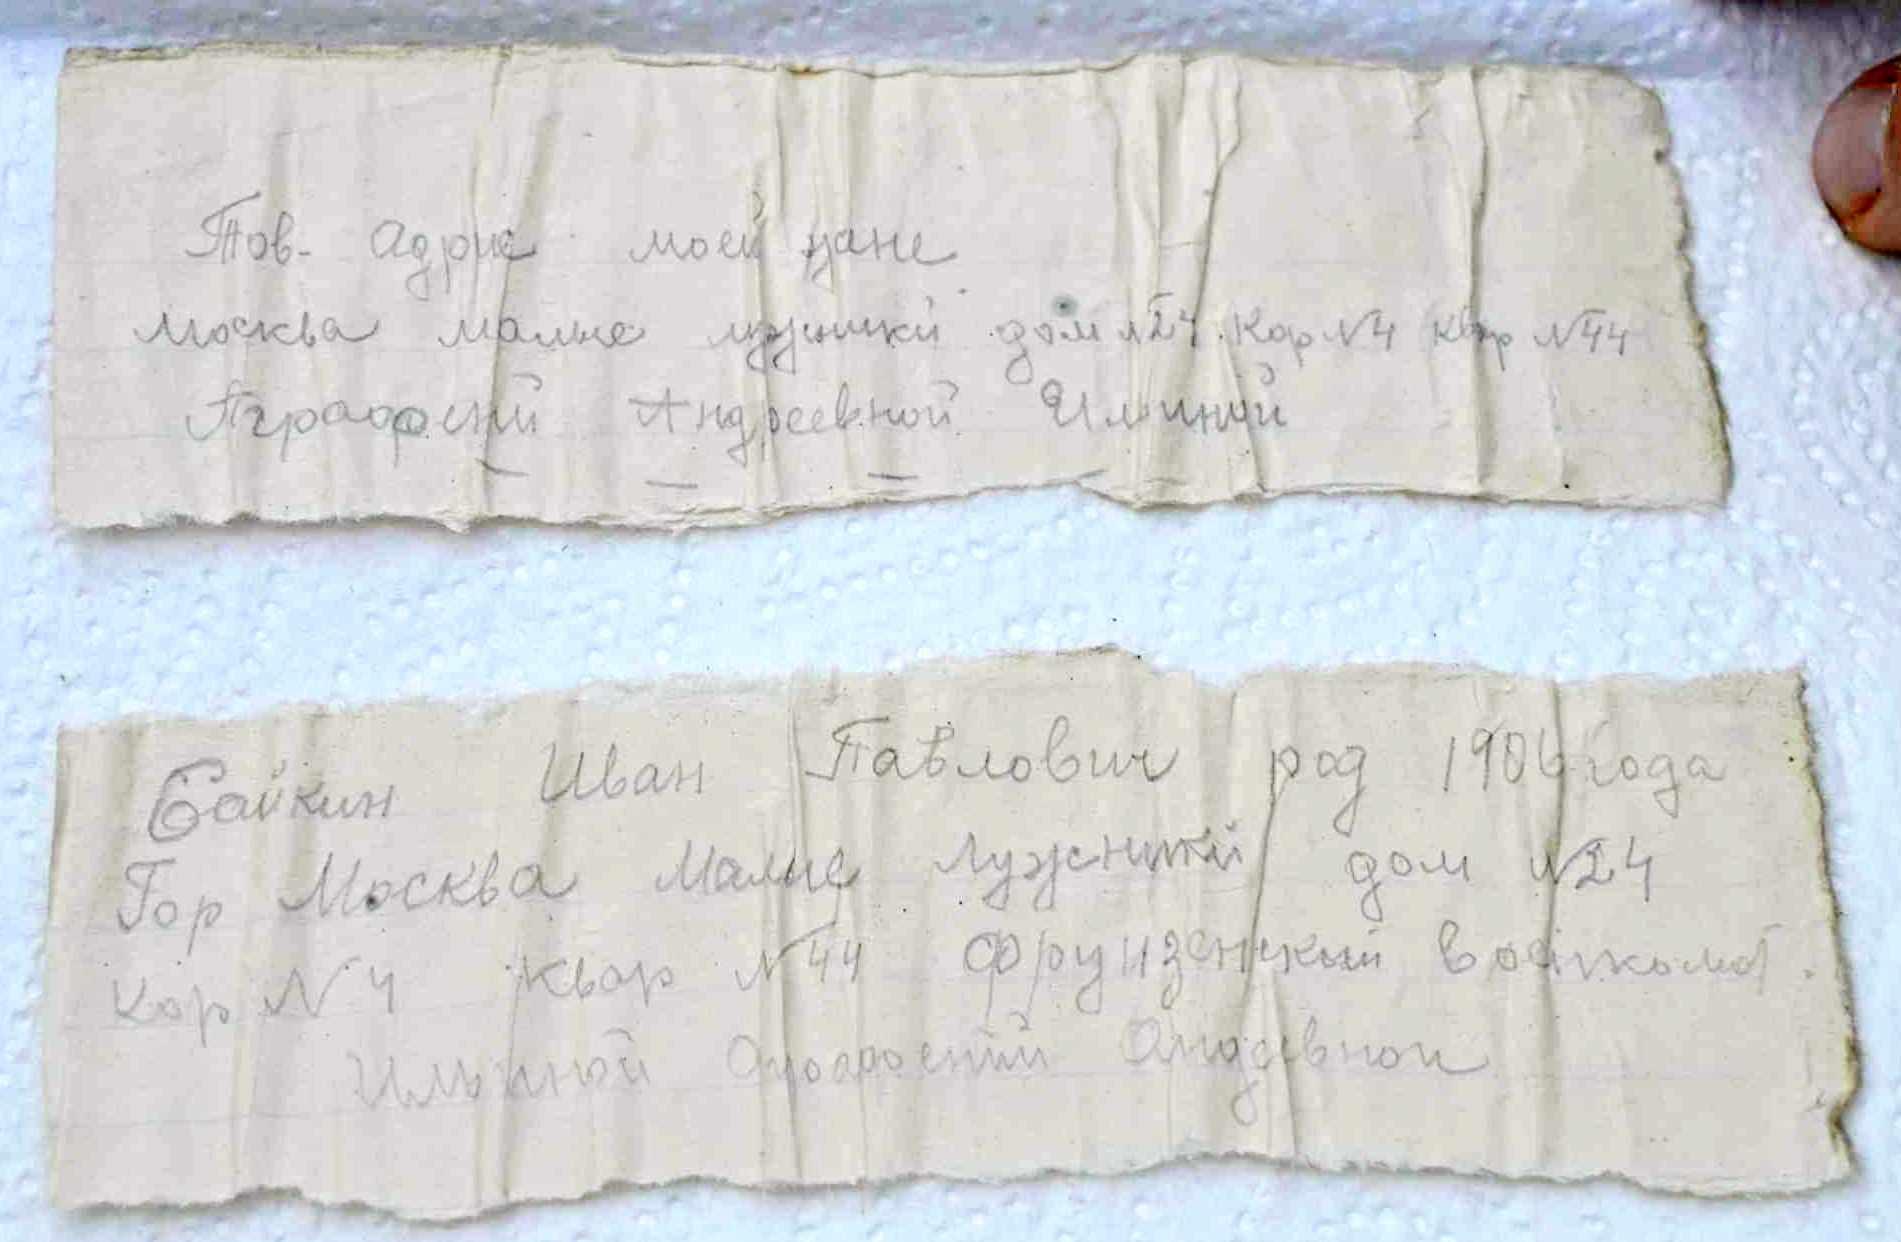 Тов. Адрис моей жане
Москва малые лужники дом №24 Кор №4 квар №44
Аграфений Андреевной Илиной
Байкин Иван Павлович род 1906 года
Гор Москва Малые Лужники дом №24
Кор №4 квар №44 Фрунзенский Воейкомат.
Ильиной Аграфений Андревной